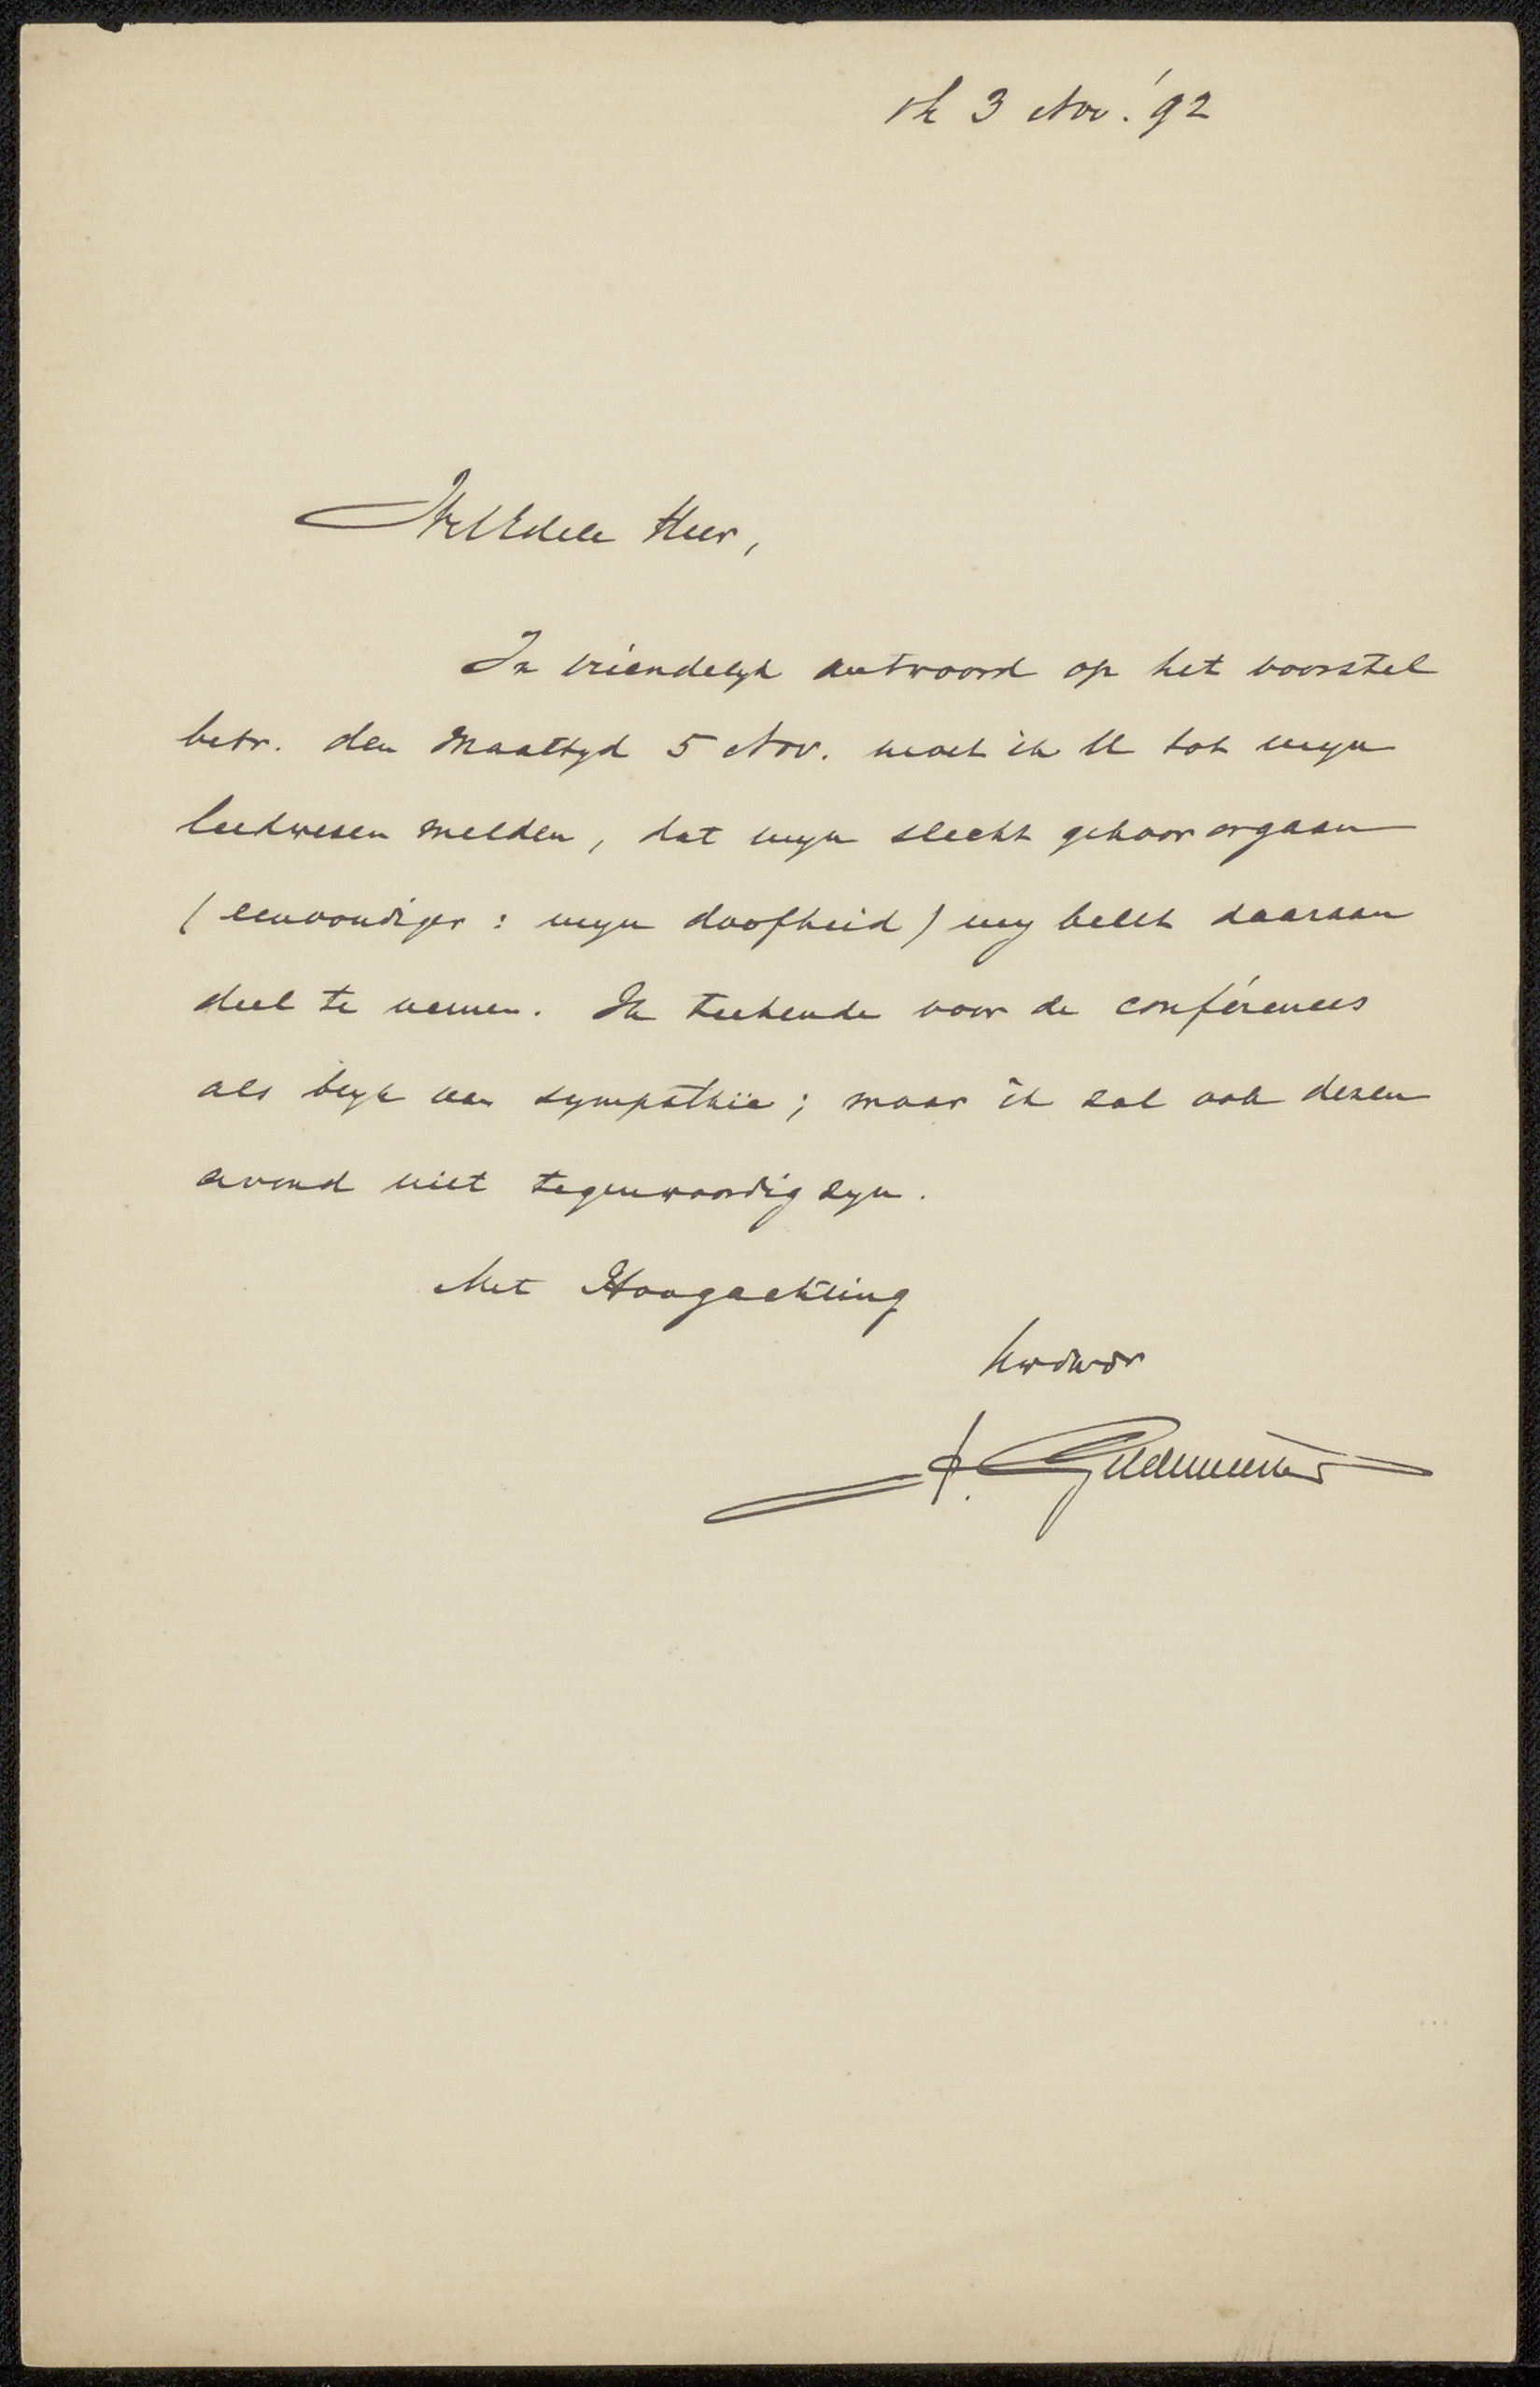 3 Nov. '92
WelEdele Heer,
In vriendelyk antwoord op het voorstel
betr. den maaltyd 5 Nov. moet ik U tot myn
leedwezen melden, dat myn slecht gehoororgaan
(eenvoudiger: myn doofheid) my belet daaraan
deel te nemen. Ik teekende voor de conférences
als blyk van sympathie; maar ik zal ook dezen
avond niet tegenwoordig zyn.
Met Hoogachting
Uwdwdr
F. Gildemeester